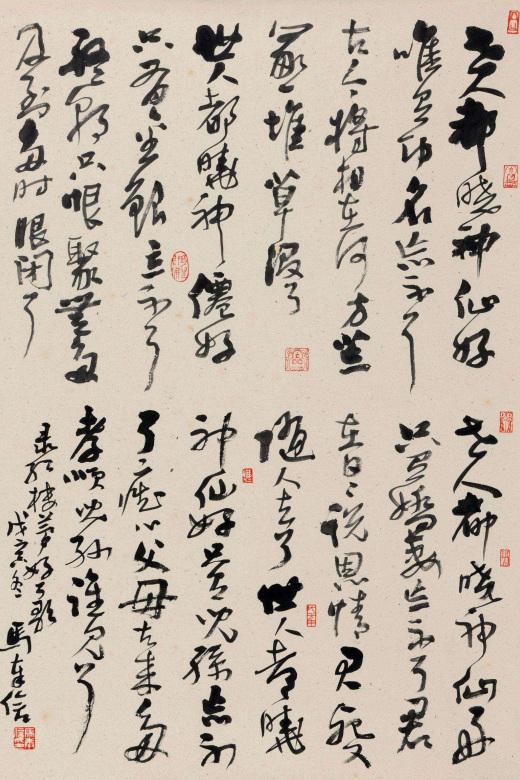 世人都晓神仙好
唯有功名忘不了
古今將相在何方荒
冢一堆草没了
世人都曉神僊好
只有金銀忘不了
終朝只恨聚無多
及到多時眼閉了
世人都晓神仙好
只有嬌妻忘不了君
在日日說恩情君死又
隨人去了世人都曉
神仙好只有兒孫忘不
了痴心父母古來多
孝順兒孫誰見了
录红楼夢好了歌
戊寅冬 馬奉信